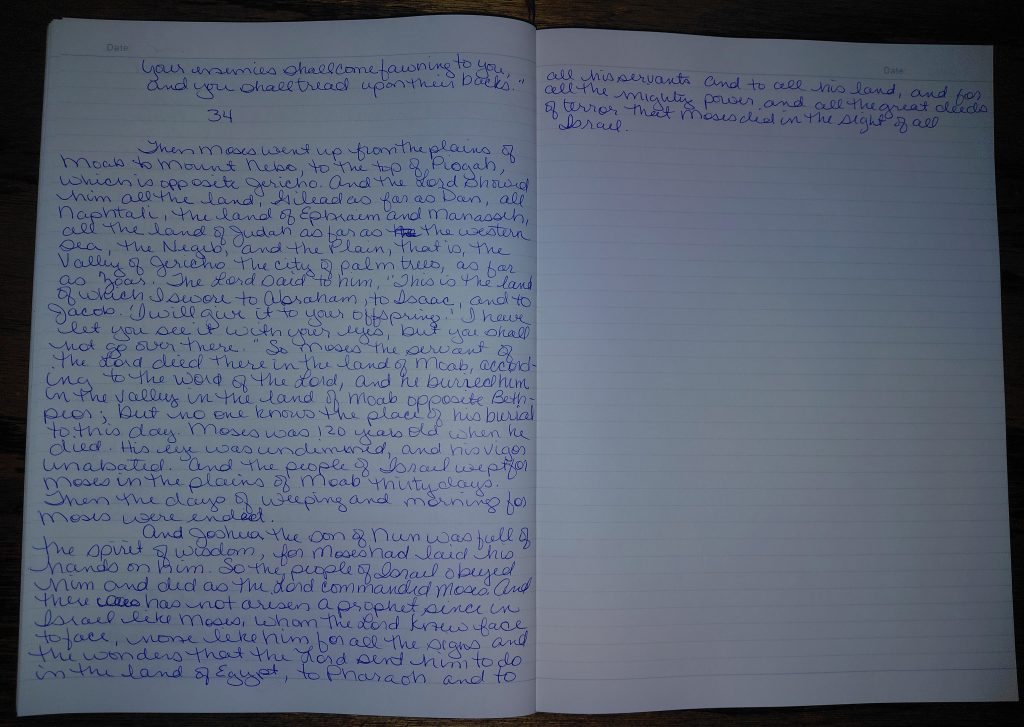 Date:
your enemies shall come fawning to you,
and you shall tread upon their backs."
34
Then Moses went up from the plains of
Moab to Mount Nebo, to the top of Pisgah,
which is opposite Jericho. And the Lord showed
him all the land, Gilead as far as Dan, all
Naphtali, the land of Ephraim and Manasseh,
all the land of Judah as far as the the western
sea, the Negeb, and the Plain, that is, the
Valley of Jericho the city of palm trees, as far
as Zoar. The Lord said to him, "This is the land
of which I swore to Abraham, to Isaac, and to
Jacob. 'I will give it to your offspring.' I have
let you see it with your eyes, but you shall
not go over there." So Moses the servant of
the Lord died there in the land of Moab, accord-
ing to the word of the Lord, and he burried him
in the valley in the land of Moab opposite Beth-
peor; but no one knows the place of his burial
to this day. Moses was 120 years old when he
died. His eye was undimmed, and his vigor
unabated. And the people of Israel wept for
Moses in the plains of Moab thirty days.
Then the days of weeping and morning for
Moses were ended.
And Joshua the son of Nun was full of
the spirit of wisdom, for Moses had laid his
hands on him. So the people of Israel obeyed
him and did as the Lord commanded Moses. And
there has not arisen a prophet since in
Israel like Moses, whom the Lord knew face
to face, none like him for all the signs and
the wonders that the Lord sent him to do
in the land of Egypt, to Pharaoh and to
Date:
all his servants and to all his land, and for
all the mighty power and all the great deeds
of terror that Moses did in the sight of all
Israel.